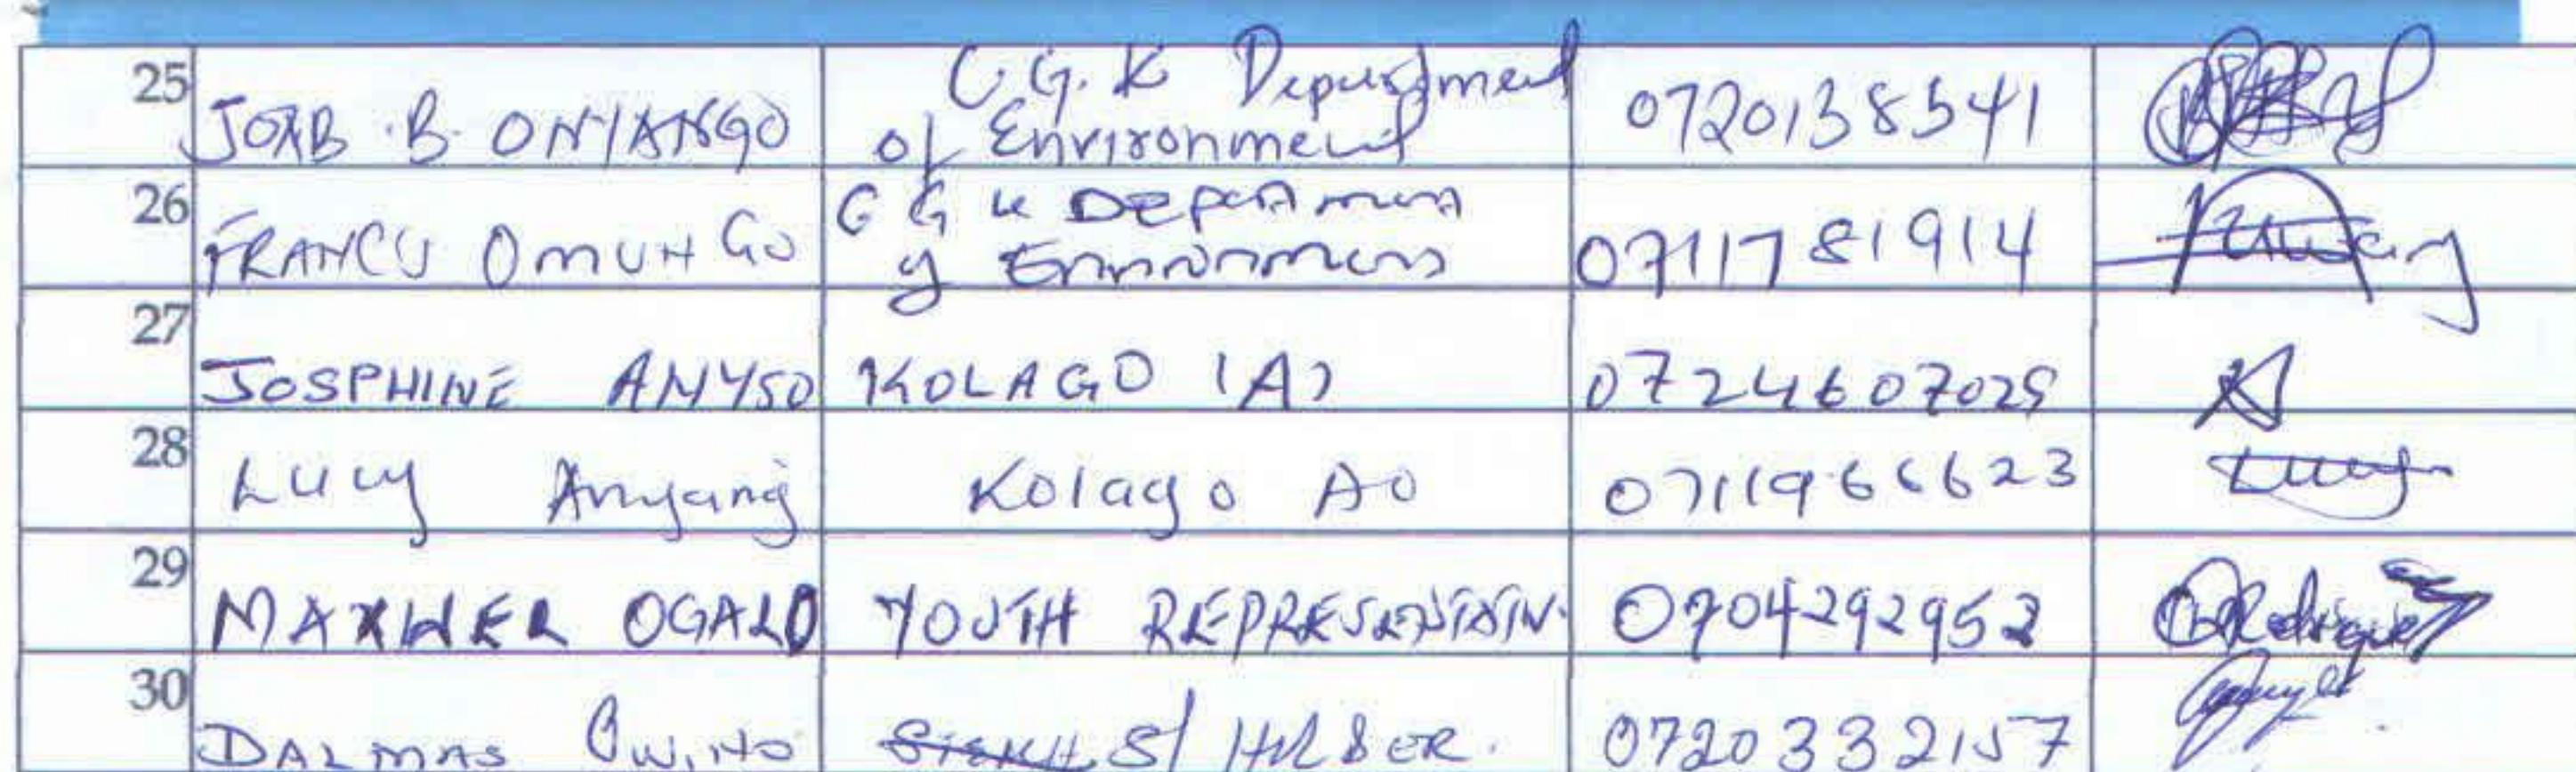 25 JOAB .B. ONYANGO C.G.K Department of Environment 0720138541
26 FRANCIS OMUNGO C G K Department of Environment 0711781914
27 JOSPHINE ANYSO KOLAGO (A) 0724607025
28 Lucy Anyang Kolago AO 0711966623
29 MAXWER OGALO YOUTH REPRESENTATIV. 0704292952
30 DALMAS OWINO S/ HOLDER. 0720332157